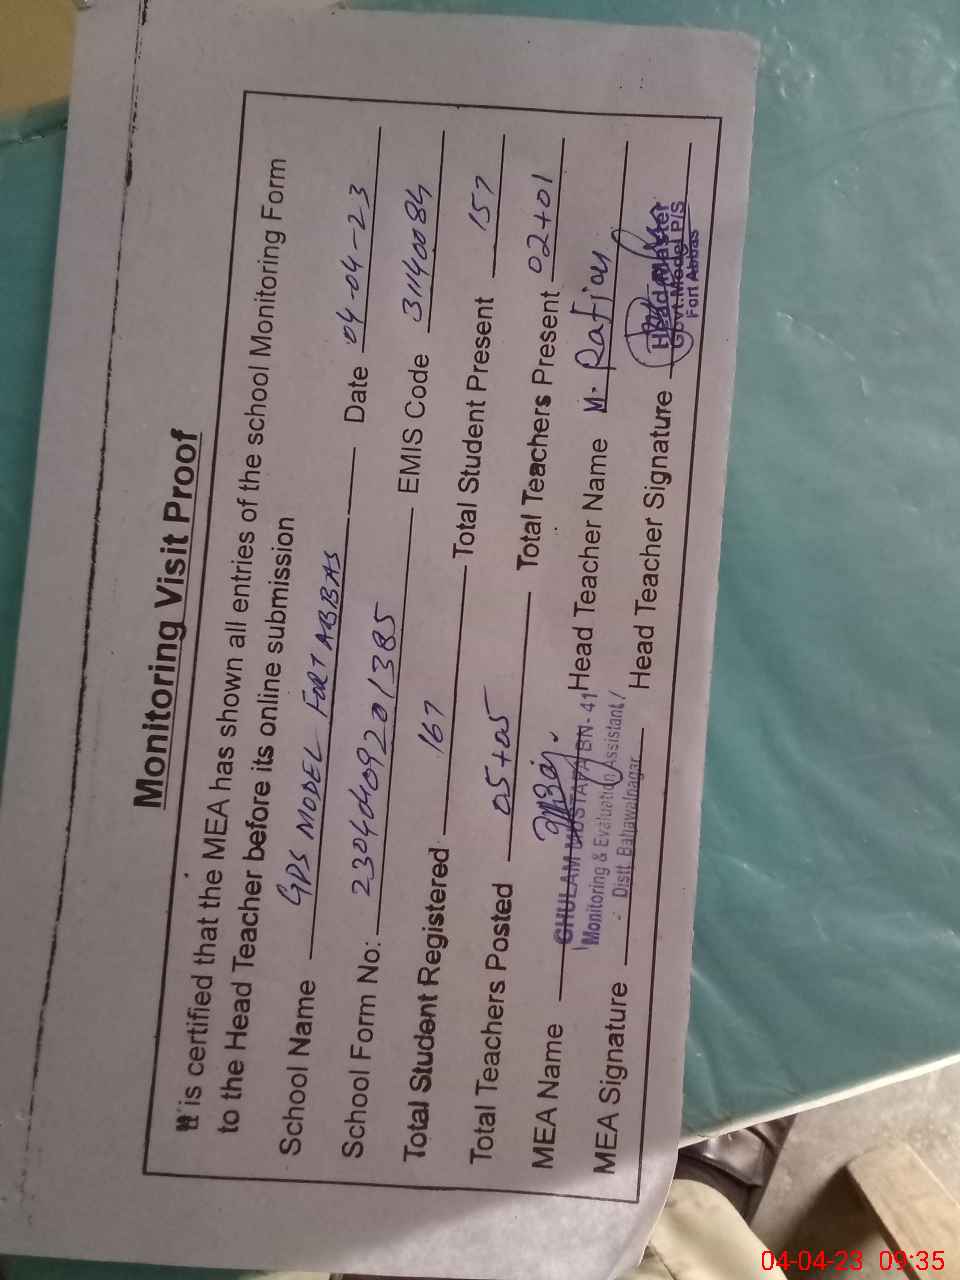 Monitoring Visit Proof
It is certified that the MEA has shown all entries of the school Monitoring Form
to the Head Teacher before its online submission
School Name GPS MODEL FORT ABBAS Date 04-04-23
School Form No: 23040409201385 EMIS Code 31140084
Total Student Registered 167 Total Student Present 157
Total Teachers Posted 05+05 Total Teachers Present 02+01
MEA Name GHULAM MUSTAFA BN-41 Head Teacher Name M.
Monitoring & Evaluation Assistant
MEA Signature Distt Bahawalnagar Head Teacher Signature
Head Master
Govt. Model P/S
Fort Abbas
04-04-23 09:35